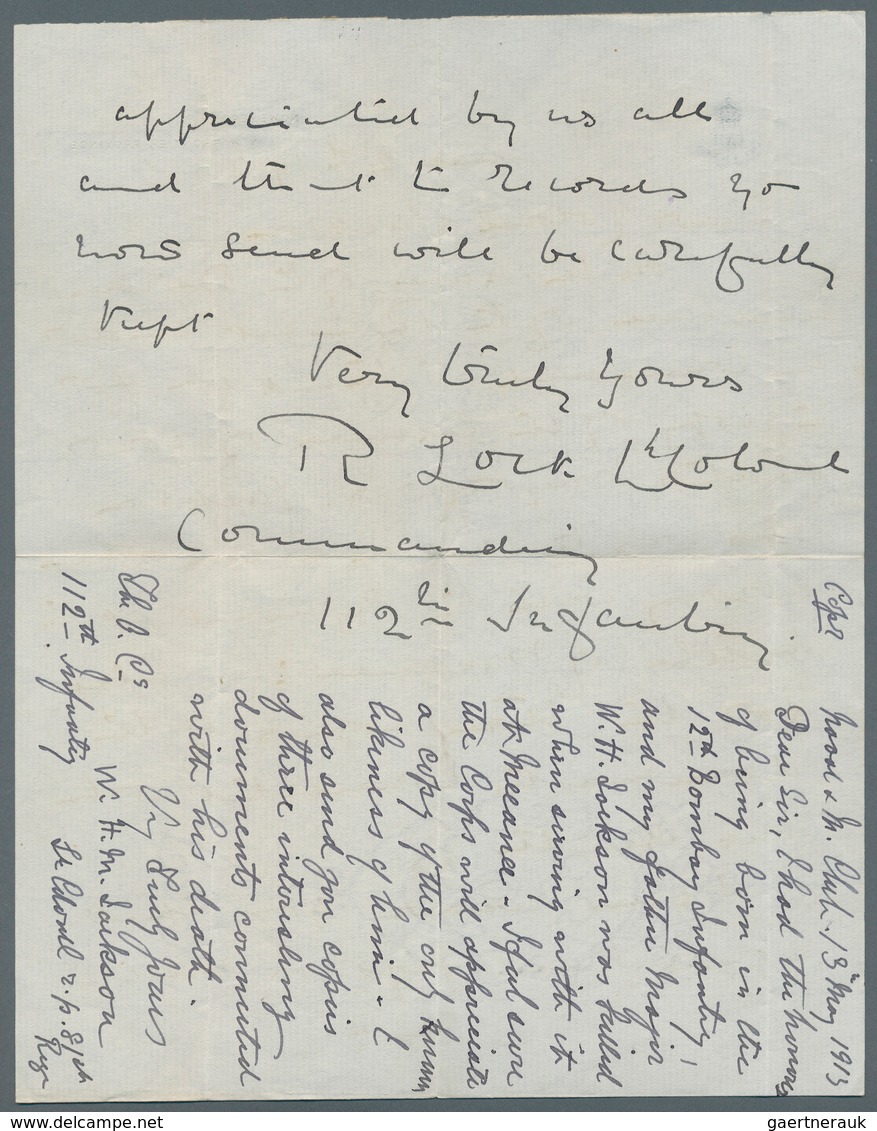 appreciated by us all
and that the records you
now send will be carefully
kept
Very truly yours
R Lock Lt Colonel
Commanding
112th Infantry
Copy
Naval & M. Club. 13th May 1913
Dear Sir, I had the honour
of being born in the
12th Bombay Infantry!
and my father Major
W. H. Jackson was killed
when serving with it
at Meeanee - I feel sure
the Corps will appreciate
a copy of the only known
likeness of him - I
also send you copies
of three interesting
documents connected
with his death.
Vy Truly Yours
W. H. M. Jackson
Lt Colonel r.p. 81st
Regt
The O. C.
112th Infantry
www.delcampe.net
gaertnerauk